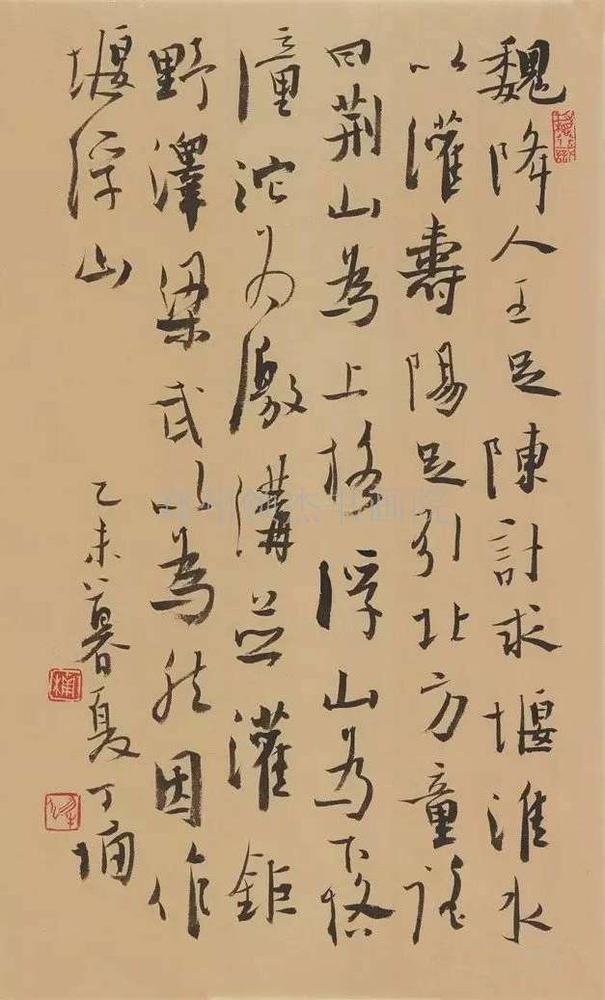 魏降人王足陳計求堰淮水
以灌壽陽足引北方童謠
曰荆山為上格浮山為下格
潼沱为激溝並灌鉅
野澤梁武以為然因作
堰浮山
乙未暮夏丁